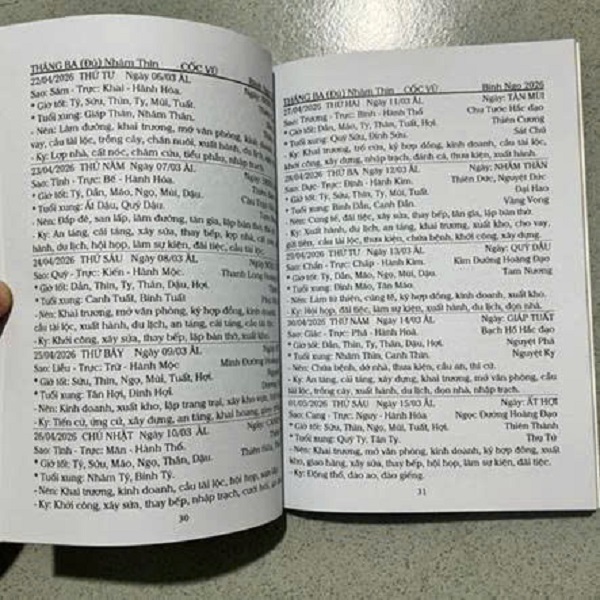 THÁNG BA (Đủ) Nhâm Thìn CỐC VŨ Bính
22/04/2026 THỨ TƯ Ngày 06/03 ÂL
Sao: Sâm - Trực: Khai - Hành Hỏa.
* Giờ tốt: Tý, Sửu, Thìn, Tỵ, Mùi, Tuất.
* Tuổi xung: Giáp Thân, Nhâm Thân.
- Nên: Làm đường, khai trương, mở văn phòng, kinh
vay, cầu tài lộc, trồng cây, chăn nuôi, xuất hành, du lịch
- Kỵ: Lợp nhà, cất nóc, châm cứu, tiểu phẫu, nhập trạch.
23/04/2026 THỨ NĂM Ngày 07/03 ÂL
Sao: Tỉnh - Trực: Bế - Hành Hỏa.
* Giờ tốt: Tý, Dần, Mão, Ngọ, Mùi, Dậu.
* Tuổi xung: Ất Dậu, Quý Dậu.
- Nên: Đắp đê, san lấp, làm đường, tân gia, lập bàn thờ,
- Kỵ: An táng, cải táng, xây sửa, thay bếp, lợp nhà,
hành, du lịch, hội họp, làm sự kiện, đãi tiệc, cầu tài lộc.
24/04/2026 THỨ SÁU Ngày 08/03 ÂL
Sao: Quỷ - Trực: Kiến - Hành Mộc. Thanh Long
* Giờ tốt: Dần, Thìn, Tỵ, Thân, Dậu, Hợi.
* Tuổi xung: Canh Tuất, Bính Tuất
- Nên: Khai trương, mở văn phòng, ký hợp đồng, kinh doanh,
cầu tài lộc, xuất hành, du lịch, an táng, cải táng, cầu tài lộc
- Kỵ: Khởi công, xây sửa, thay bếp, lập bàn thờ, xuất
25/04/2026 THỨ BẢY Ngày 09/03 ÂL
Sao: Liễu - Trực: Trừ - Hành Mộc Minh Đường
* Giờ tốt: Sửu, Thìn, Ngọ, Mùi, Tuất, Hợi.
* Tuổi xung: Tân Hợi, Đinh Hợi.
- Nên: Kinh doanh, xuất kho, lập trang trại, xây kho
- Kỵ: Tiến cử, ứng cử, xây dựng, an táng, khai hoang,
26/04/2026 CHỦ NHẬT Ngày 10/03 ÂL
Sao: Tinh - Trực: Mãn - Hành Thổ.
* Giờ tốt: Tý, Sửu, Mão, Ngọ, Thân, Dậu.
* Tuổi xung: Nhâm Tý, Bính Tý.
- Nên: Khai trương, kinh doanh, cầu tài lộc, hội họp,
- Kỵ: Khởi công, xây sửa, thay bếp, nhập trạch, cưới hỏi,
30
THÁNG BA (Đủ) Nhâm Thìn CỐC VŨ Bính Ngọ 2026
27/04/2026 THỨ HAI Ngày 11/03 ÂL Ngày: TÂN MÙI
Sao: Trương - Trực: Bình - Hành Thổ Chu Tước Hắc đạo
* Giờ tốt: Dần, Mão, Tỵ, Thân, Tuất, Hợi. Thiên Cương
* Tuổi xung: Quý Sửu, Đinh Sửu. Sát Chủ
- Nên: Khai trương, trổ cửa, ký hợp đồng, kinh doanh, cầu tài lộc,
khởi công, xây dựng, nhập trạch, đánh cá, thưa kiện, xuất hành.
28/04/2026 THỨ BA Ngày 12/03 ÂL Ngày: NHÂM THÂN
Sao: Dực - Trực: Định - Hành Kim. Thiên Đức, Nguyệt Đức
* Giờ tốt: Tý, Sửu, Thìn, Tỵ, Mùi, Tuất. Đại Hao
* Tuổi xung: Bính Dần, Canh Dần. Vãng Vong
- Nên: Cúng tế, đãi tiệc, xây sửa, thay bếp, tân gia, lập bàn thờ.
- Kỵ: Xuất hành, du lịch, an táng, khai trương, xuất kho, cho vay,
gửi tiền, cầu tài lộc, thưa kiện, chữa bệnh, khởi công, xây dựng.
29/04/2026 THỨ TƯ Ngày 13/03 ÂL Ngày: QUÝ DẬU
Sao: Chẩn - Trực: Chấp - Hành Kim. Kim Đường Hoàng Đạo
* Giờ tốt: Tý, Dần, Mão, Ngọ, Mùi, Dậu. Tam Nương
* Tuổi xung: Đinh Mão, Tân Mão.
- Nên: Làm từ thiện, cúng tế, ký hợp đồng, kinh doanh, xuất kho.
- Kỵ: Hội họp, đãi tiệc, làm sự kiện, xuất hành, du lịch, dọn nhà.
30/04/2026 THỨ NĂM Ngày 14/03 ÂL Ngày: GIÁP TUẤT
Sao: Giác - Trực: Phá - Hành Hoả. Bạch Hổ Hắc đạo
* Giờ tốt: Dần, Thìn, Tỵ, Thân, Dậu, Hợi. Nguyệt Phá
* Tuổi xung: Nhâm Thìn, Canh Thìn. Nguyệt Kỵ
- Nên: Chữa bệnh, dỡ nhà, thưa kiện, cầu an, thi cử.
- Kỵ: An táng, cải táng, xây dựng, khai trương, mở văn phòng, cầu
tài lộc, trồng cấy, xuất hành, du lịch, dọn nhà, nhập trạch.
01/05/2026 THỨ SÁU Ngày 15/03 ÂL Ngày: ẤT HỢI
Sao: Cang - Trực: Nguy - Hành Hỏa Ngọc Đường Hoàng Đạo
* Giờ tốt: Sửu, Thìn, Ngọ, Mùi, Tuất, Hợi Thiên Thành
* Tuổi xung: Quý Tỵ, Tân Tỵ. Thụ Tử
- Nên: Khai trương, mở văn phòng, kinh doanh, ký hợp đồng, xuất
kho, giao hàng, xây sửa, thay bếp, hội họp, làm sự kiện, đãi tiệc.
- Kỵ: Động thổ, đào ao, đào giếng.
31